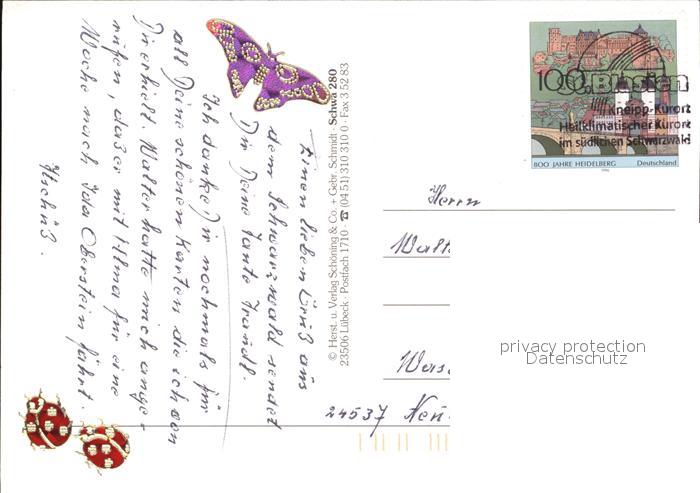 Einen lieben Gruß aus
dem Schwarzwald sendet
Dir Deine Tante Traudl.
Ich danke Dir nochmals für
all Deine schönen Karten die ich von
Dir erhielt. Walter hatte mich ange-
rufen, daß er mit Ilma für eine
Woche nach Idar Oberstein fährt.
Tschüß.
© Herst. u. Verlag Schöning & Co. + Gebr. Schmidt · Schwa 280
23506 Lübeck · Postfach 1710 · ☎ (04 51) 310 310 0 · Fax 3 52 83
100
St. Blasien
Kneipp-Kurort
Heilklimatischer Kurort
im südlichen Schwarzwald
800 JAHRE HEIDELBERG Deutschland
1996
Herrn
Walt
privacy protection
Datenschutz
24537 Neu